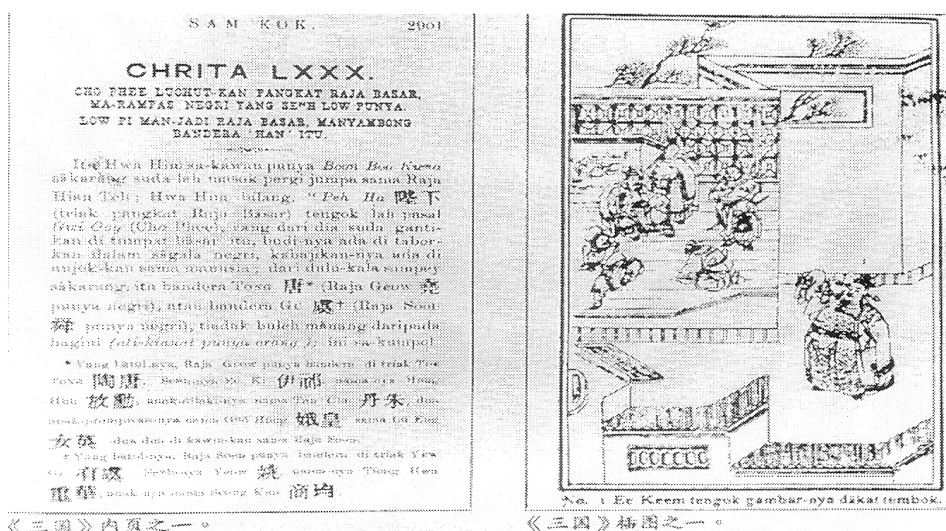 SAM KOK. 2901
CHRITA LXXX.
CHO PHEE LUCHUT-KAN PANGKAT RAJA BASAR,
MA-RAMPAS NEGRI YANG SEH LOW PUNYA.
LOW PI MAN-JADI RAJA BASAR, MANYAMBONG
BANDERA 'HAN' ITU.
Itu Hwa Him sa-kawan punya Boon Boo Kwan
sakarang suda lah masok pergi jumpa sama Raja
Hian Teh; Hwa Him bilang, "Peh Ha 陛下
(triak pangkat Raja Basar) tengok lah pasal
Gwi Ong (Cho Phee), yang dari dia suda ganti-
kan di tampat basar itu, budi-nya ada di tabor-
kan dalam sagala negri, kabajikan-nya ada di
unjok-kan sama manusia; dari dulu-kala sampey
sakarang, itu bandera Tong 唐* (Raja Geow 堯
punya negri), atau bandera Gu 虞† (Raja Soon
舜 punya negri), tiadak buleh manang daripada
bagini ini sa-kumpol
* Yang bandaya, Raja Geow punya bandera di triak Toe
陶唐, Ki 伊祁, nama-nya Hong
Hun 放勳, anak nama Tan Choo 丹朱, dua
nama Hong 娥皇 sama Lu Eng
女英 dua dua di kawin-kan sama Raja Soon.
† Yang bandaya, Raja Soon punya bandera di triak Yew
Gu 有虞 Yeow 姚, nama-nya Tiong Hwa
重華, anak-nya nama Seong Kin 商均.
《三国》内页之一。
No. 1 Ee Keem tengok gambar-nya dakat tembok.
《三国》插图之一。